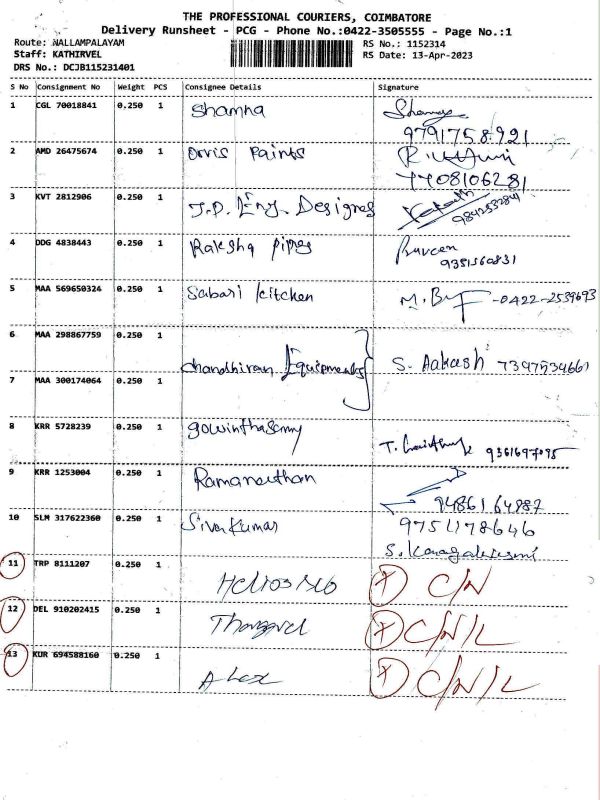 THE PROFESSIONAL COURIERS, COIMBATORE
Delivery Runsheet - PCG - Phone No.:0422-3505555 - Page No.:1
Route: NALLAMPALAYAM
Staff: KATHIRVEL
DRS No.: DCJB115231401
RS No.: 1152314
RS Date: 13-Apr-2023
S No Consignment No Weight PCS Consignee Details Signature
1 CGL 70018841 0.250 1 Shamna
9791758921
2 AMD 26475674 0.250 1 Orris Paints
7708106281
3 KVT 2812906 0.250 1 J.D. Eng. Designes
9842532841
4 DDG 4838443 0.250 1 Raksha Pipes Praveen
9381560831
5 MAA 569650324 0.250 1 Sabari kitchen -0422-2539693
6 MAA 298867759 0.250 1
Chandhiran Equipments S. Aakash 7397534661
7 MAA 300174064 0.250 1
8 KRR 5728239 0.250 1 gowinthasamy
9361697095
9 KRR 1253004 0.250 1 Ramanathan
9486164887
10 SLM 317622360 0.250 1 Siva Kumar 9751178646
11 TRP 8111207 0.250 1 C/N
12 DEL 910202415 0.250 1 Thangavel C/N/L
13 KUR 694588160 0.250 1 Alex C/N/L